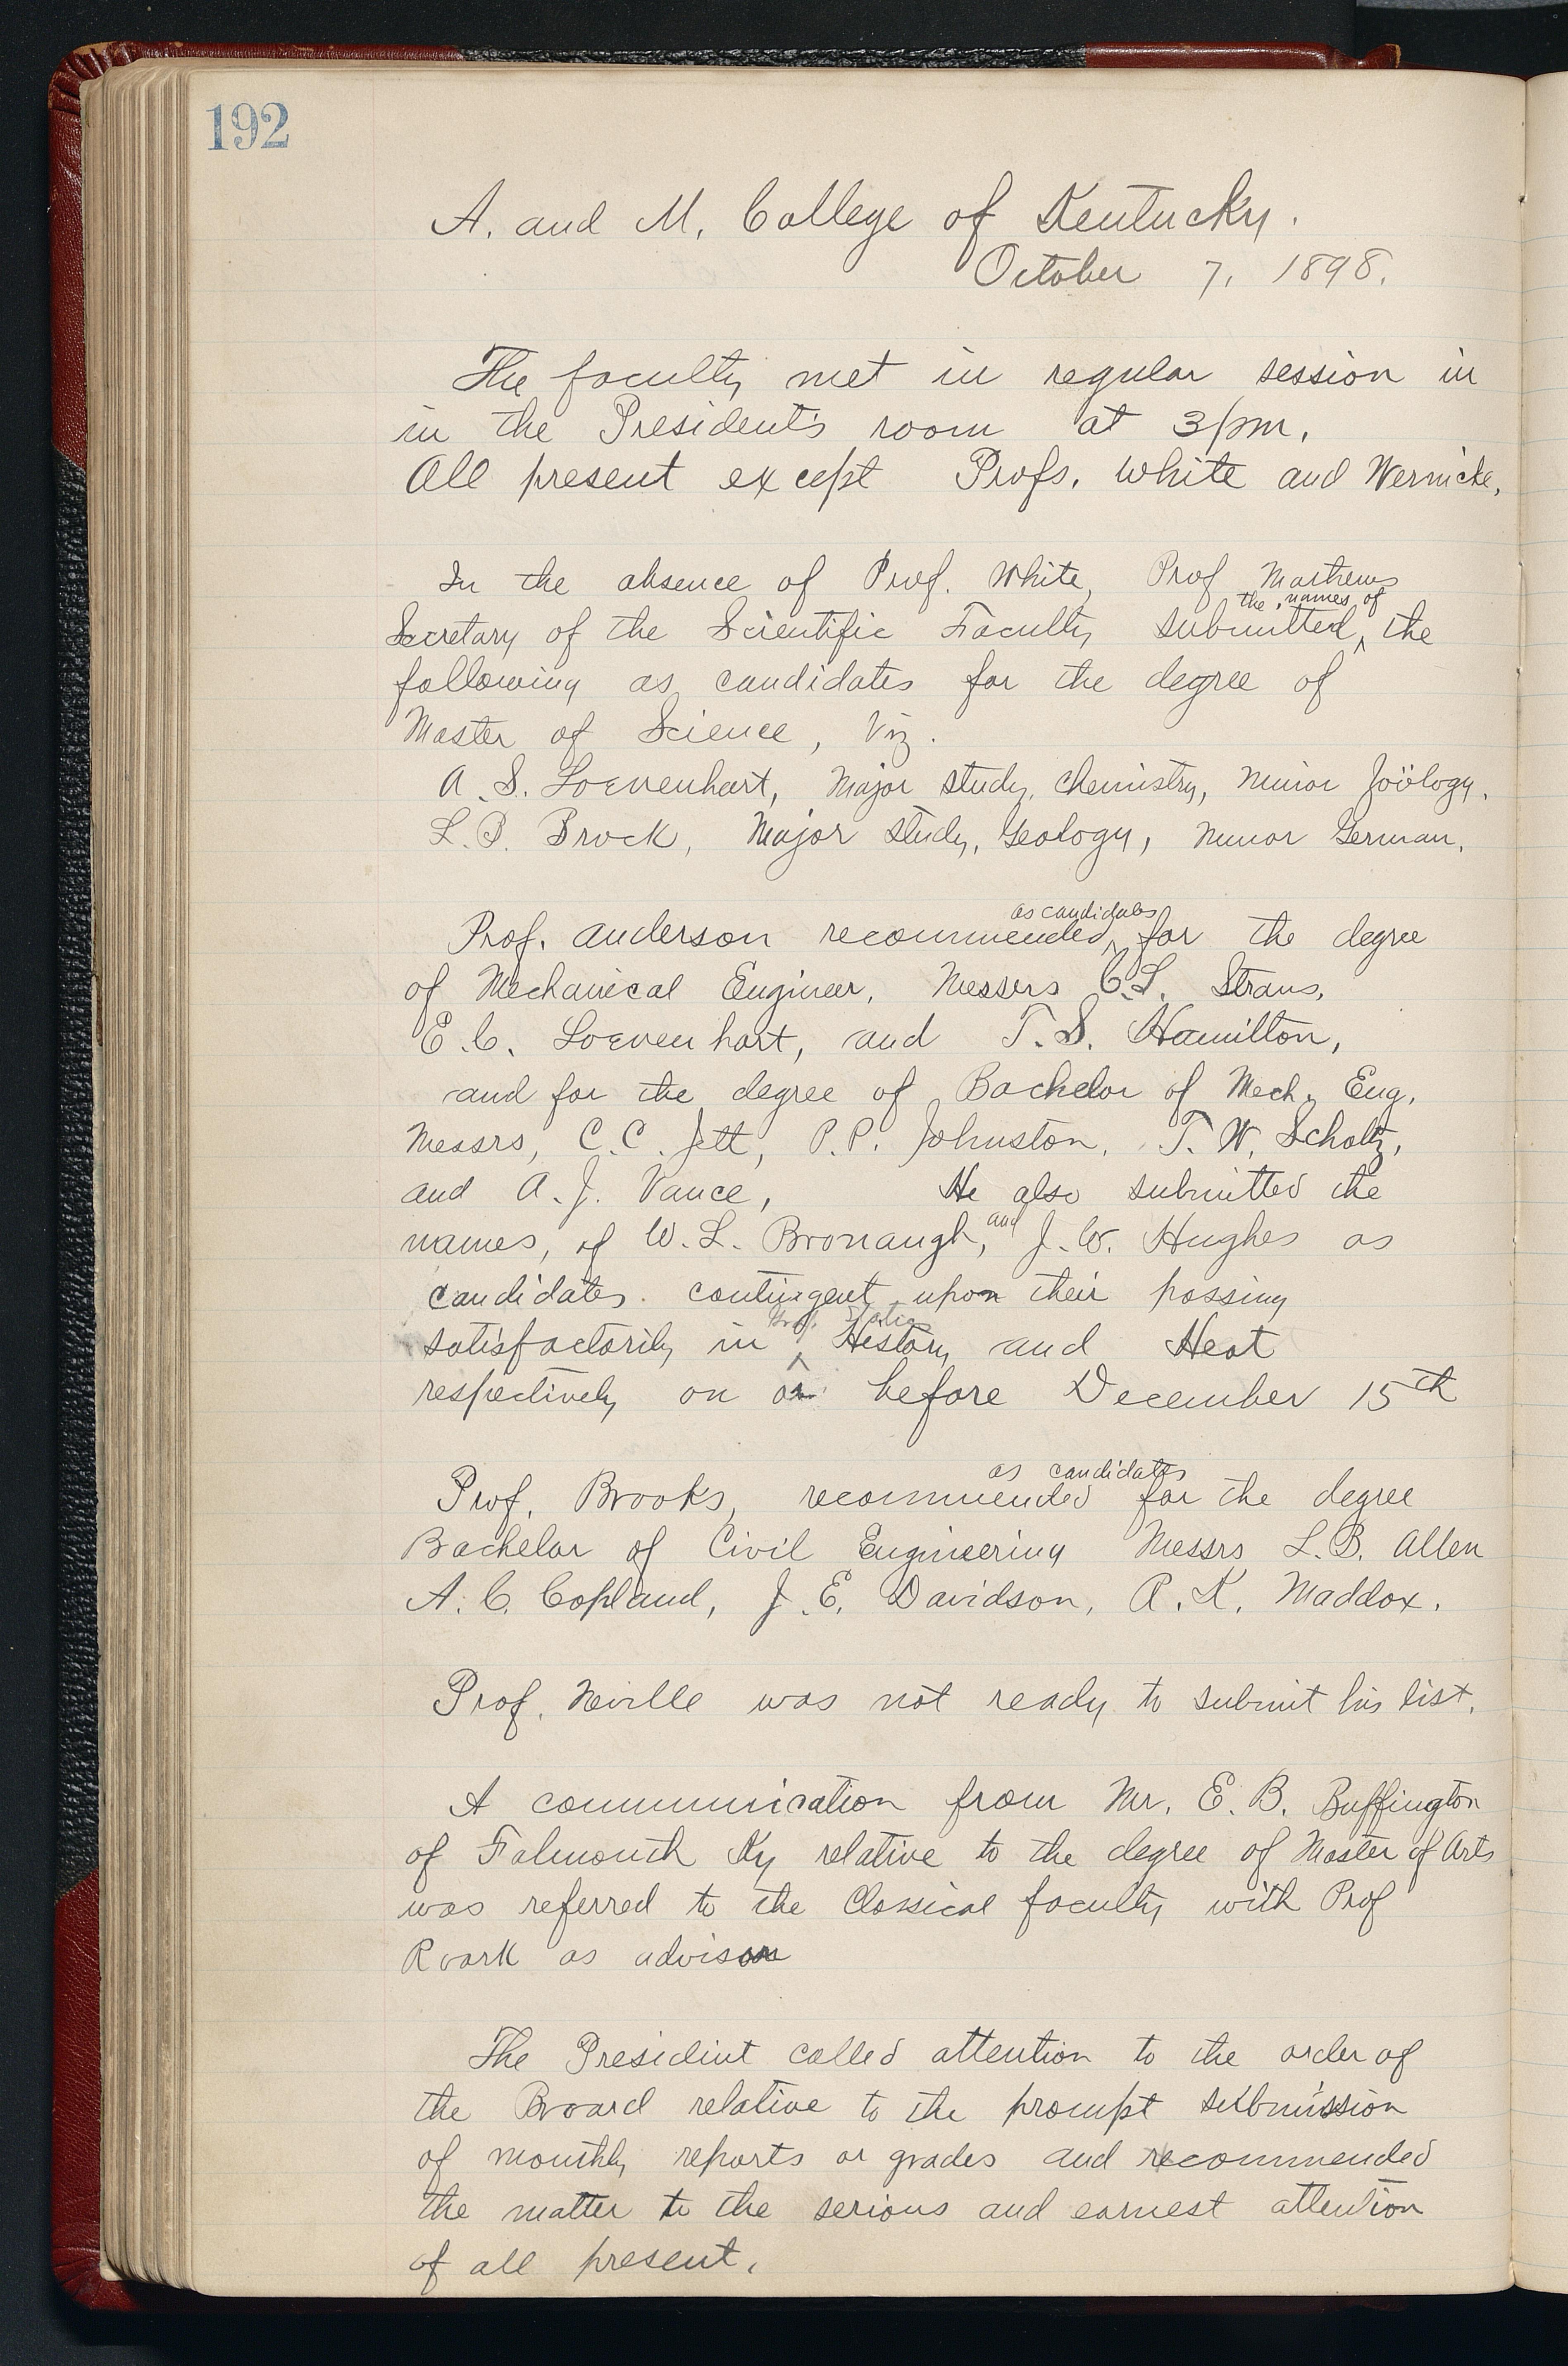 192
A. and M. College of Kentucky.
October 7, 1898.
The faculty met in regular session in
in the President's room at 3 pm.
All present except Profs. White and Wernicke.
In the absence of Prof. White, Prof Mathews
the names of
Secretary of the Scientific Faculty submitted ^ the
following as candidates for the degree of
Master of Science, Viz.
A. S. Loevenhart, Major study, Chemistry, minor Zoölogy.
L. B. Brock, Major study, Geology, minor German.
as candidates
Prof. Anderson recommended ^ for the degree
of Mechanical Engineer, Messers C. L. Straus,
E. C. Loevenhart, and T. S. Hamilton,
and for the degree of Bachelor of Mech. Eng.
Messrs, C. C. Jett, P. P. Johnston, T. W. Scholtz,
and A. J. Vance, He also submitted the
names, of W. L. Bronaugh, and J. W. Hughes as
candidates. contingent upon their passing
satisfactorily in ^ History and Heat
respectively on or before December 15th
as candidates
Prof. Brooks, recommended for the degree
Bachelor of Civil Engineering Messrs L. B. Allen
A. C. Copland, J. E. Davidson, R. K. Maddox.
Prof. Neville was not ready to submit his list.
A communication from Mr. E. B. Buffington
of Falmouth Ky relative to the degree of Master of Arts
was referred to the Classical faculty with Prof
Roark as advisor
The President called attention to the order of
the Board relative to the prompt submission
of monthly reports or grades and recommended
the matter to the serious and earnest attention
of all present.